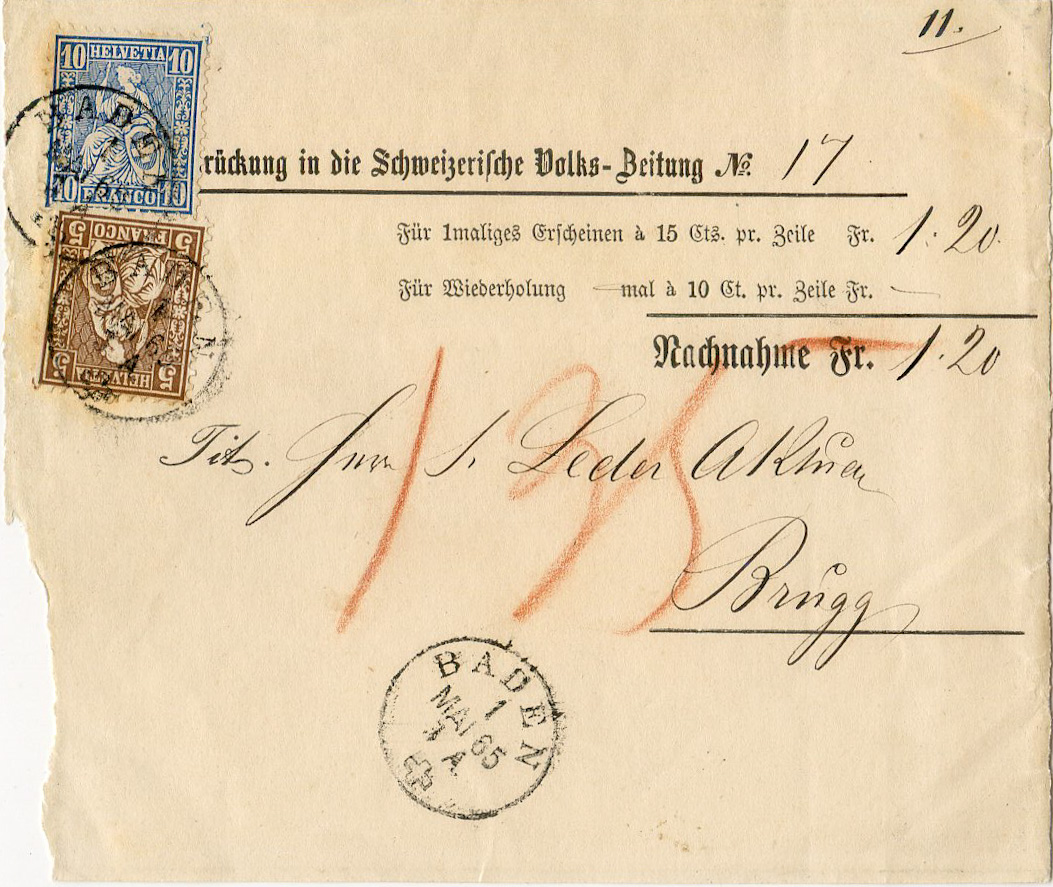 11.
10 HELVETIA 10
10 FRANCO 10
BADEN
5 FRANCO 5
5 HELVETIA 5
BADEN
rückung in die Schweizerische Volks-Zeitung No. 17
Für 1maliges Erscheinen à 15 Cts. pr. Zeile Fr. 1.20.
Für Wiederholung — mal à 10 Ct. pr. Zeile Fr. —
Nachnahme Fr. 1.20
135
Tit. Herrn S. Leder Aktuar
Brugg
BADEN
1
MAI 65
A